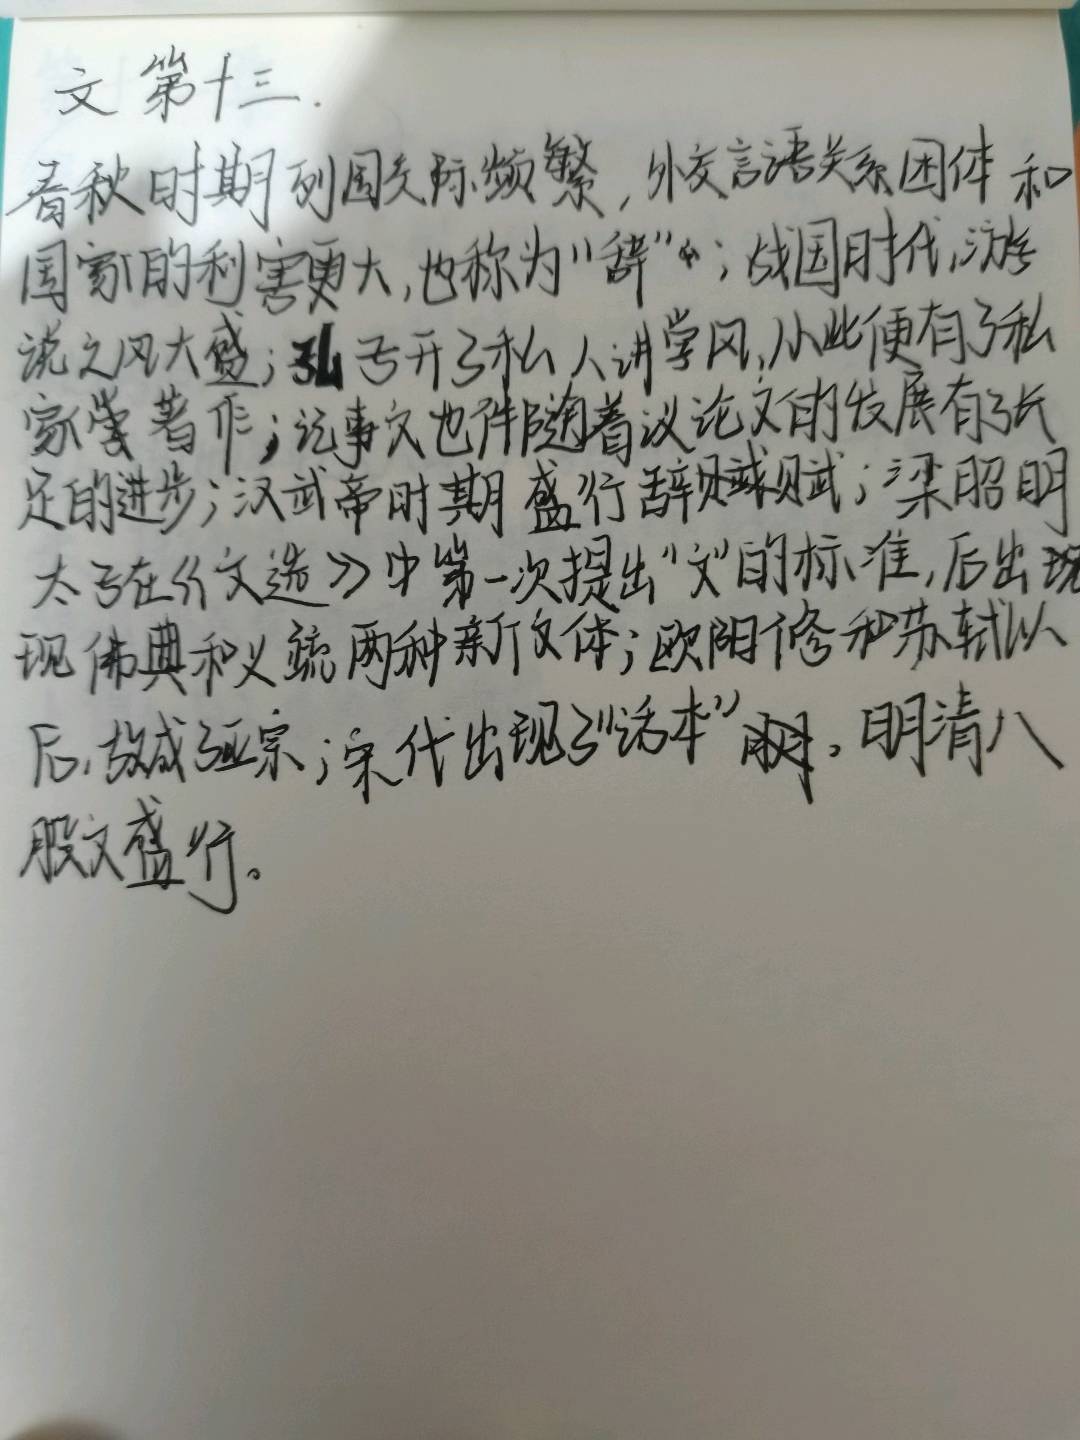 文第十三.
春秋时期列国交际频繁,外交言语关系团体和
国家的利害更大,也称为“辞”;战国时代,游
说之风大盛;孔子开了私人讲学风,从此便有了私
家著作;记事文也伴随着议论文的发展有了长
足的进步;汉武帝时期盛行辞赋;梁昭明
太子在《文选》中第一次提出“文”的标准,后出现
现佛典和义疏两种新文体;欧阳修和苏轼以
后,散成了正宗;宋代出现了“话本”。明清八
股文盛行。